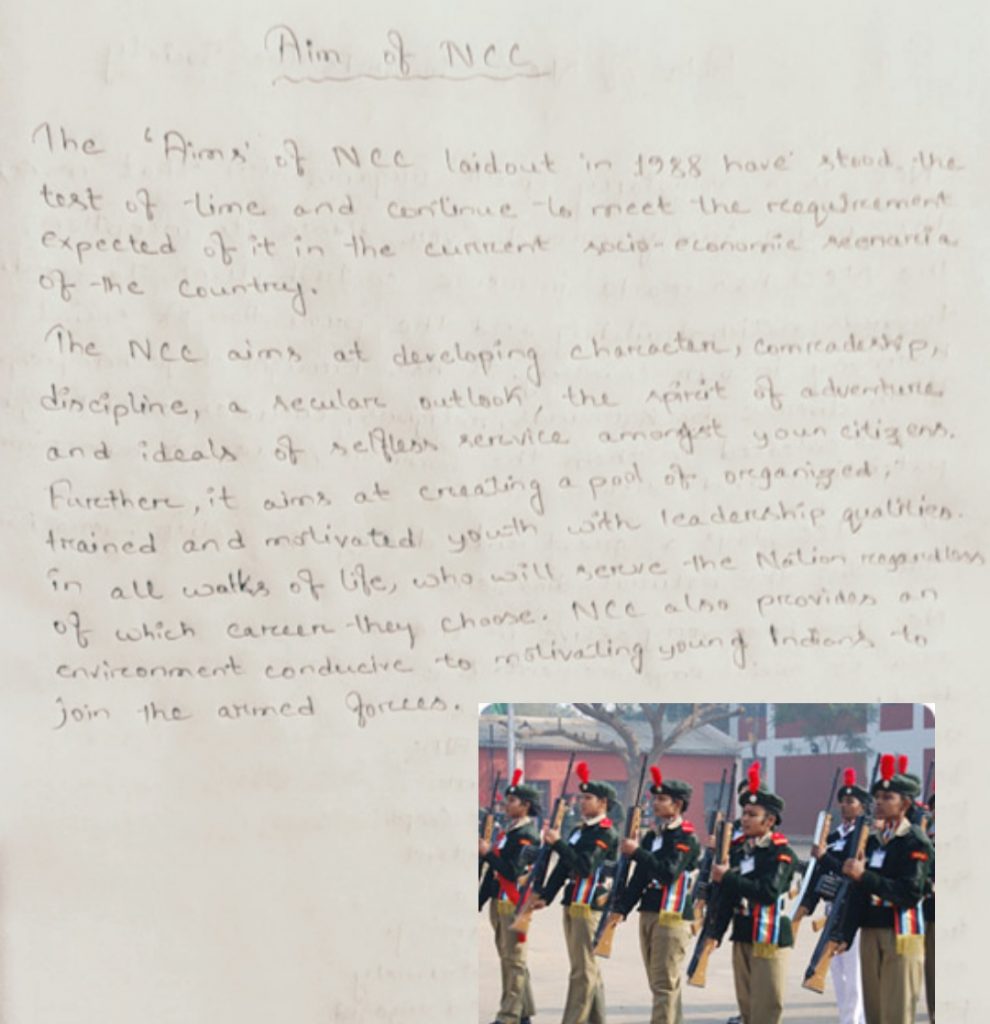 Aim of NCC
The 'Aims' of NCC laidout in 1988 have stood the
test of time and continue to meet the requirement
expected of it in the current socio-economic scenario
of the country.
The NCC aims at developing character, comradeship,
discipline, a secular outlook, the spirit of adventure
and ideals of selfless service amongst youn citizens.
Further, it aims at creating a pool of organized,
trained and motivated youth with leadership qualities
in all walks of life, who will serve the Nation regardless
of which career they choose. NCC also provides an
environment conducive to motivating young Indians to
join the armed forces.